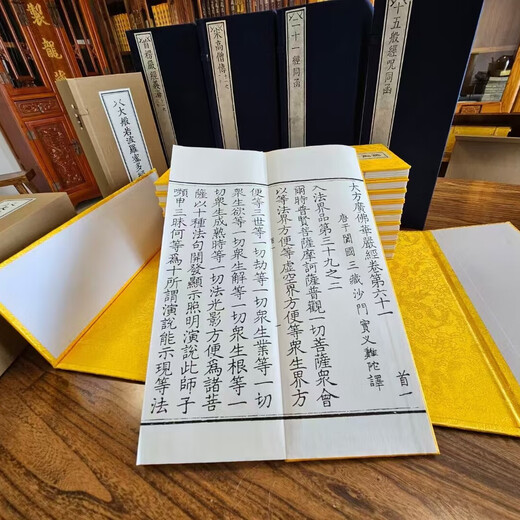 十五般經呪同函
一十一經同函
宋高僧傳
八大般若波羅蜜多
大方廣佛華嚴經卷第六十一
首一
唐于闐國三藏沙門實叉難陀譯
入法界品第三十九之二
爾時普賢菩薩摩訶薩普觀一切菩薩衆會
以等法界方便等虛空界方便等衆生界方
便等三世等一切劫等一切衆生業等一切
衆生欲等一切衆生解等一切衆生根等一
切衆生成熟時等一切法光影方便爲諸菩
薩以十種法句開發顯示照明演說此師子
頻申三昧何等爲十所謂演說能示現等法